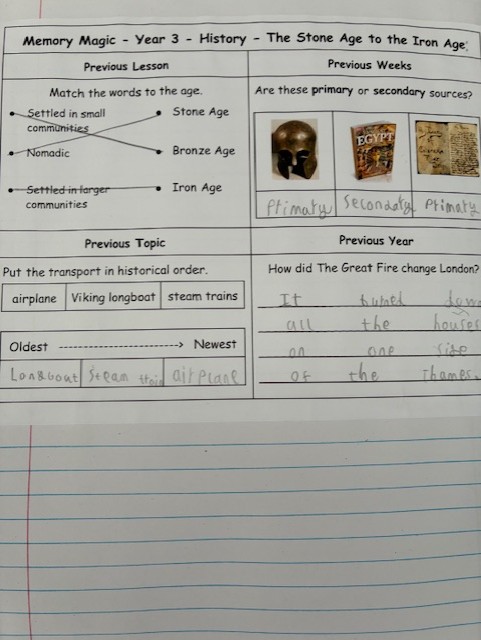 Memory Magic - Year 3 - History - The Stone Age to the Iron Age
Previous Lesson
Match the words to the age.
Settled in small communities
Stone Age
Nomadic
Bronze Age
Settled in larger communities
Iron Age
Previous Weeks
Are these primary or secondary sources?
EGYPT
Primary
Secondary
Primary
Previous Topic
Put the transport in historical order.
airplane
Viking longboat
steam trains
Oldest
Newest
Longboat
Steam train
airplane
Previous Year
How did The Great Fire change London?
It burned down
all the houses
on one side
of the Thames.